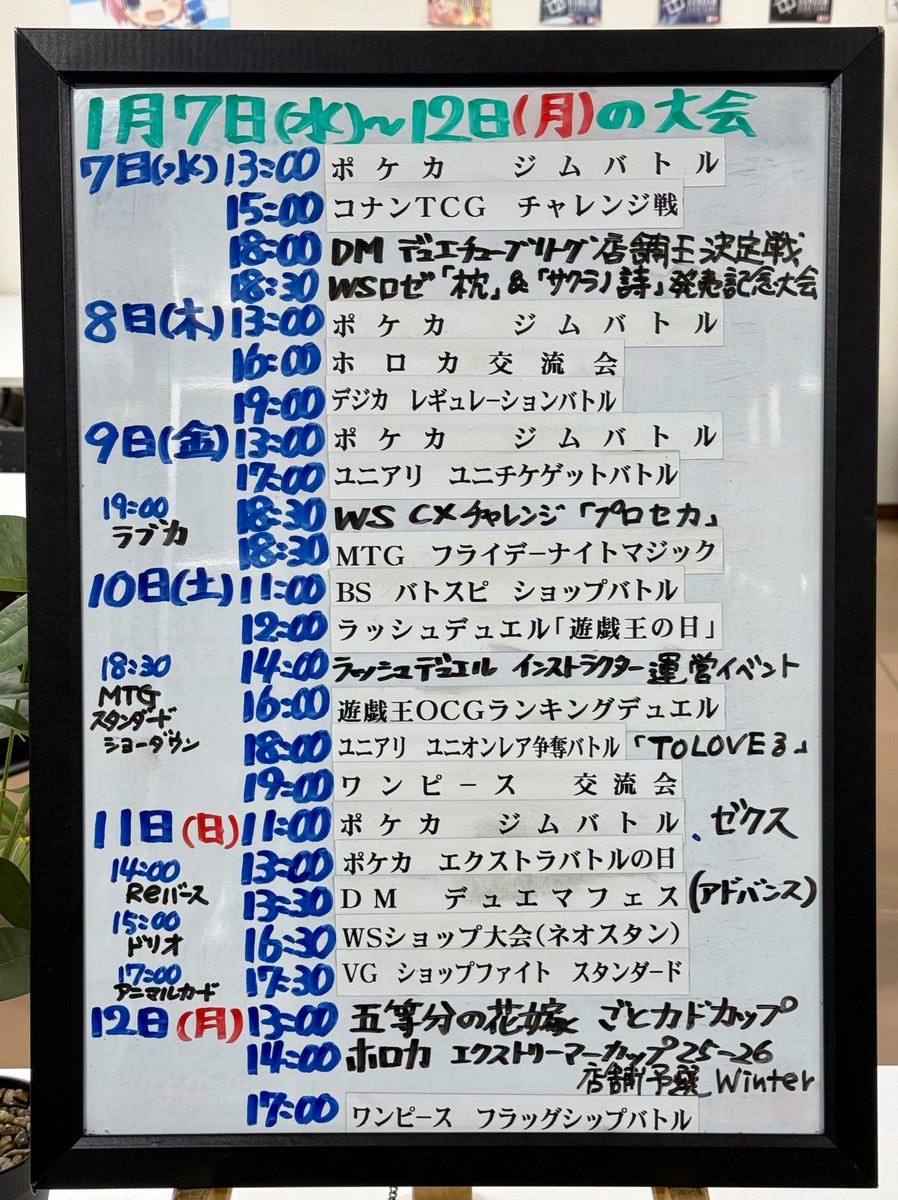 1月7日(水)~12日(月)の大会
7日(水) 13:00 ポケカ ジムバトル
15:00 コナンTCG チャレンジ戦
18:00 DM デュエチューブリーグ店舗王決定戦
18:30 WSロゼ「枕」&「サクラノ詩」発売記念大会
8日(木) 13:00 ポケカ ジムバトル
16:00 ホロカ交流会
19:00 デジカ レギュレーションバトル
9日(金) 13:00 ポケカ ジムバトル
17:00 ユニアリ ユニチケゲットバトル
18:30 WS CXチャレンジ「プロセカ」
18:30 MTG フライデーナイトマジック
19:00
ラブカ
10日(土) 11:00 BS バトスピ ショップバトル
12:00 ラッシュデュエル「遊戯王の日」
14:00 ラッシュデュエル インストラクター運営イベント
16:00 遊戯王OCGランキングデュエル
18:00 ユニアリ ユニオンレア争奪バトル「TOLOVEる」
19:00 ワンピース 交流会
18:30
MTG
スタンダード
ショーダウン
11日(日) 11:00 ポケカ ジムバトル 、ゼクス
13:00 ポケカ エクストラバトルの日
13:30 DM デュエマフェス(アドバンス)
16:30 WSショップ大会(ネオスタン)
17:30 VG ショップファイト スタンダード
14:00
Reバース
15:00
ドリオ
17:00
アニマルカード
12日(月) 13:00 五等分の花嫁 ごとカドカップ
14:00 ホロカ エクストリーマーカップ25-26
店舗予選 Winter
17:00 ワンピース フラッグシップバトル